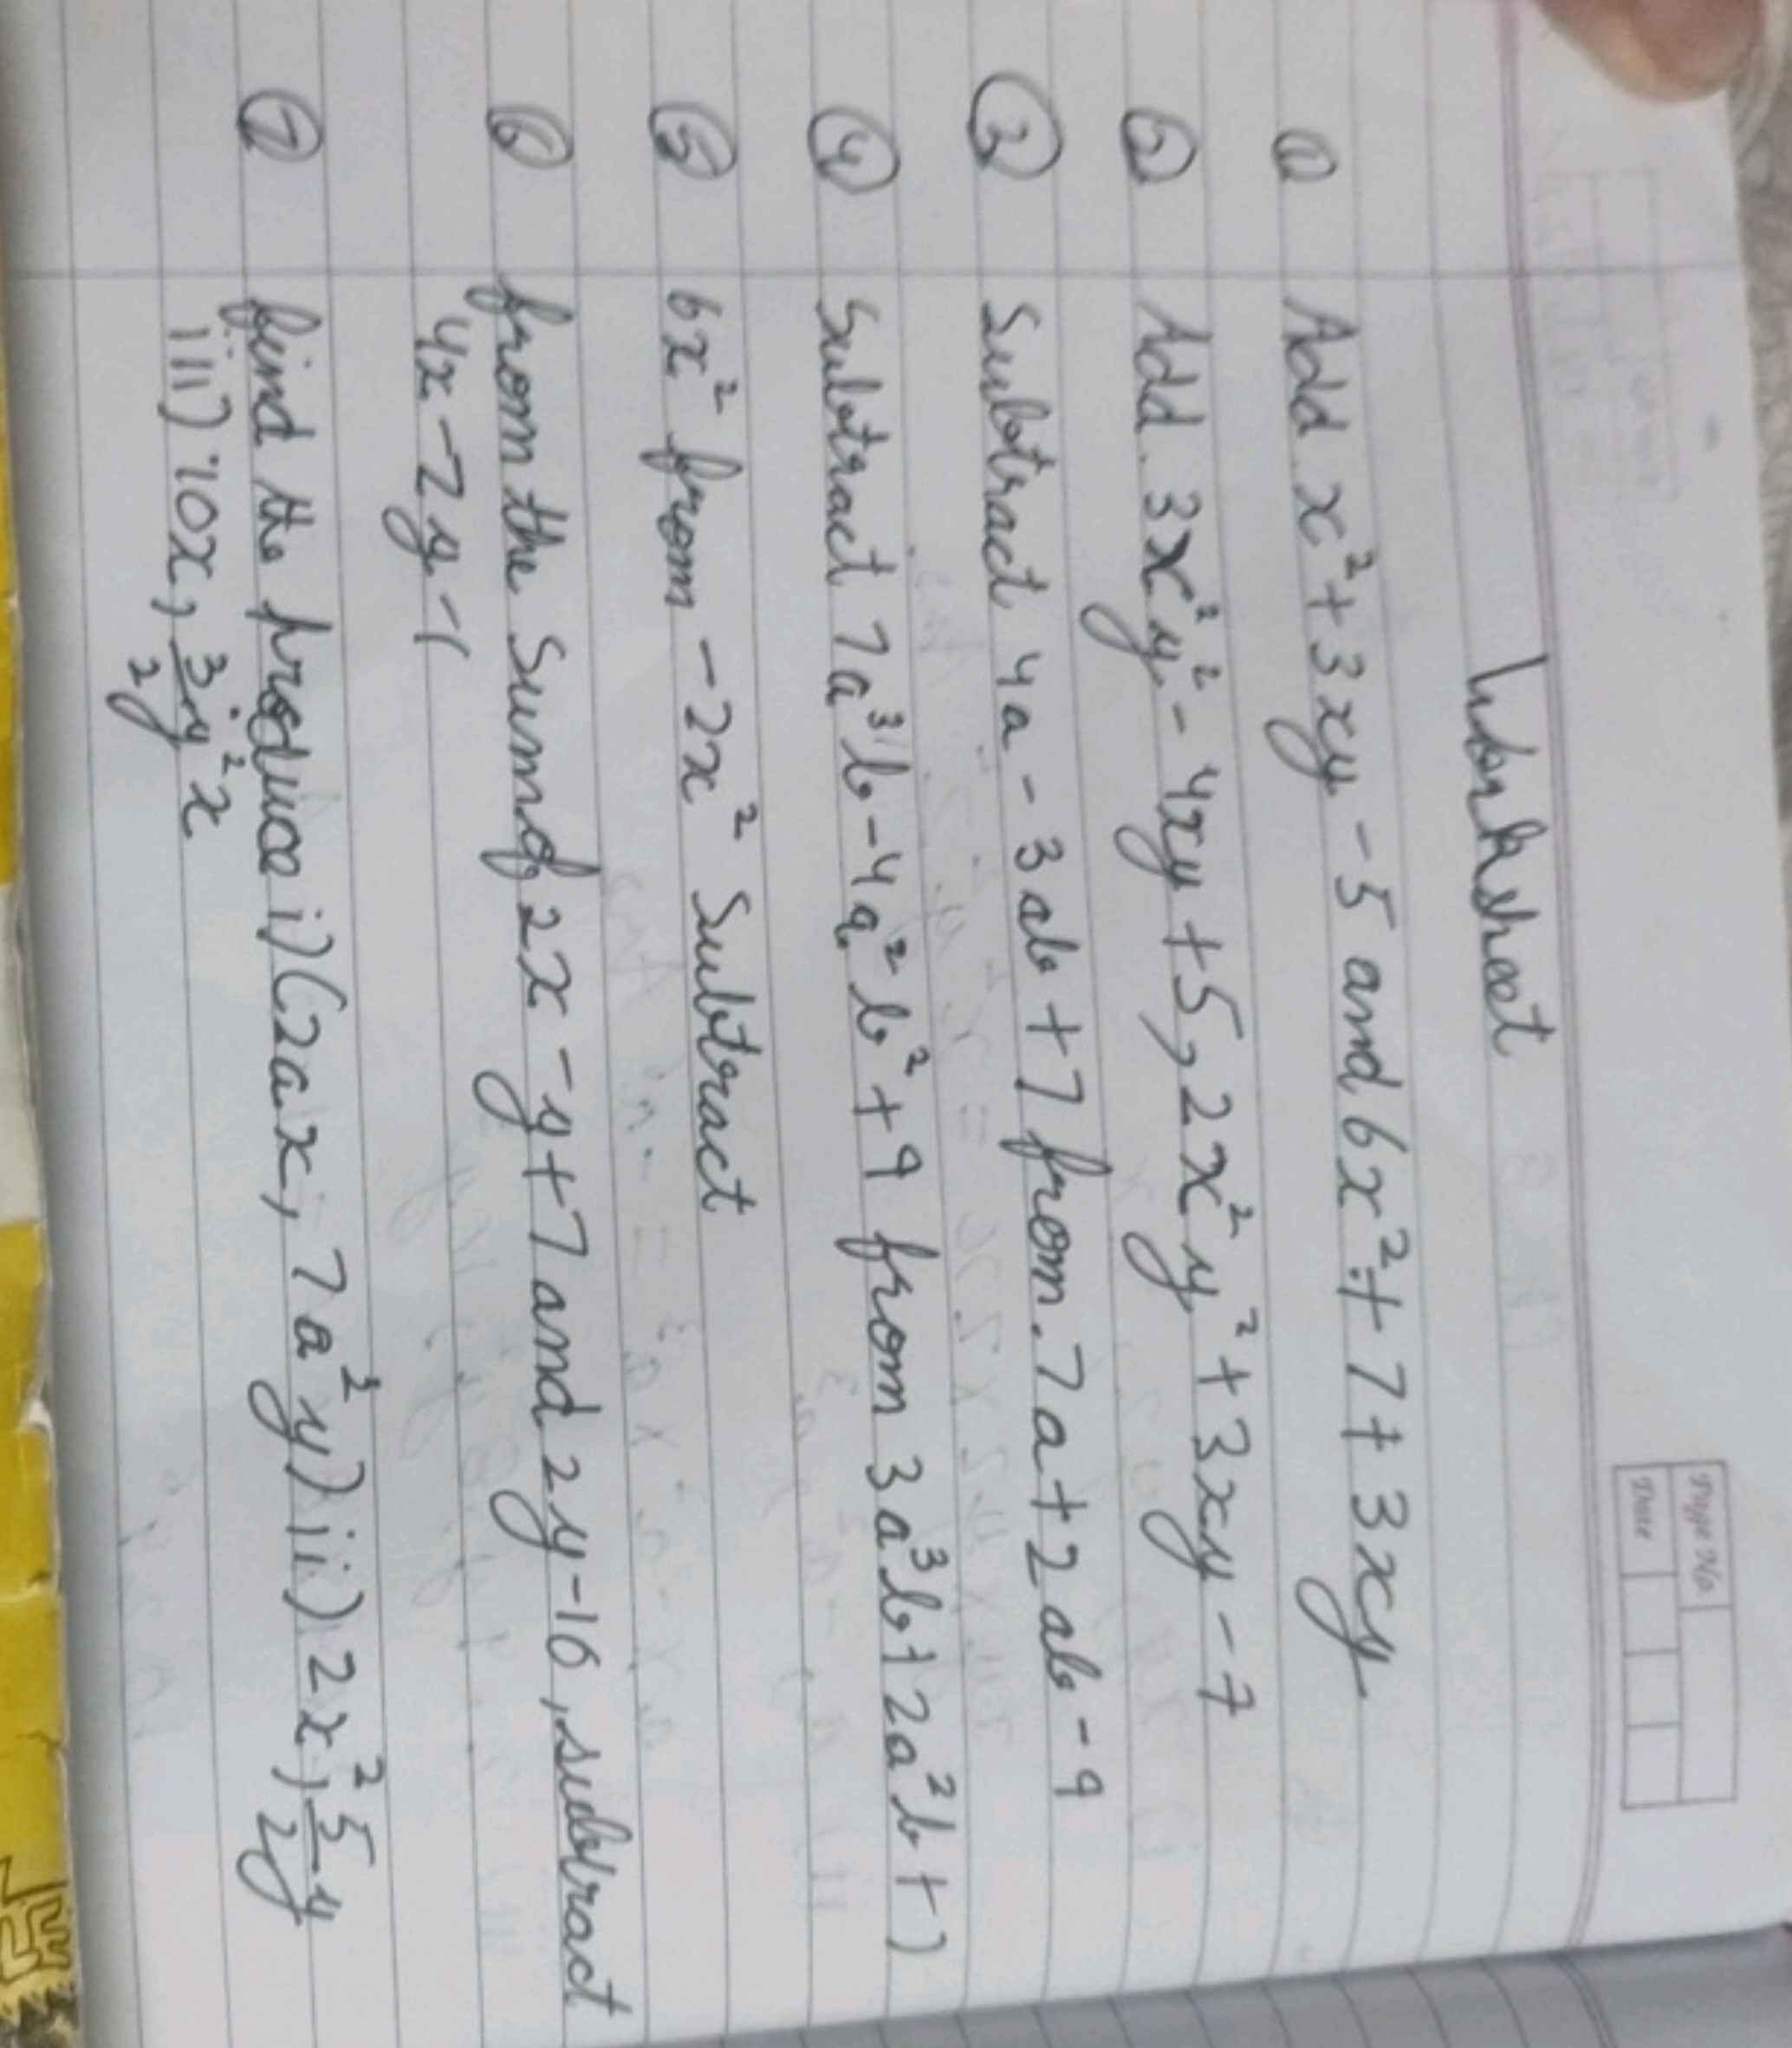 Page No
Date
Worksheet
① Add x² + 3xy - 5 and 6x² + 7 + 3xy
② Add 3x²y² - 4xy + 5, 2x²y² + 3xy - 7
③ Subtract 4a - 3ab + 7 from 7a + 2ab - 9
④ Subtract 7a³b - 4a²b² + 9 from 3a³b + 2a²b + 1
⑤ 6x² from - 2x² Subtract
⑥ from the Sum of 2x - y + 7 and 2y - 16, subtract
4x - 7y - 1
⑦ find the produce i) (2ax, 7a²y) ii) 2x², 5/2y y
iii) 10x, 3/2y y²x